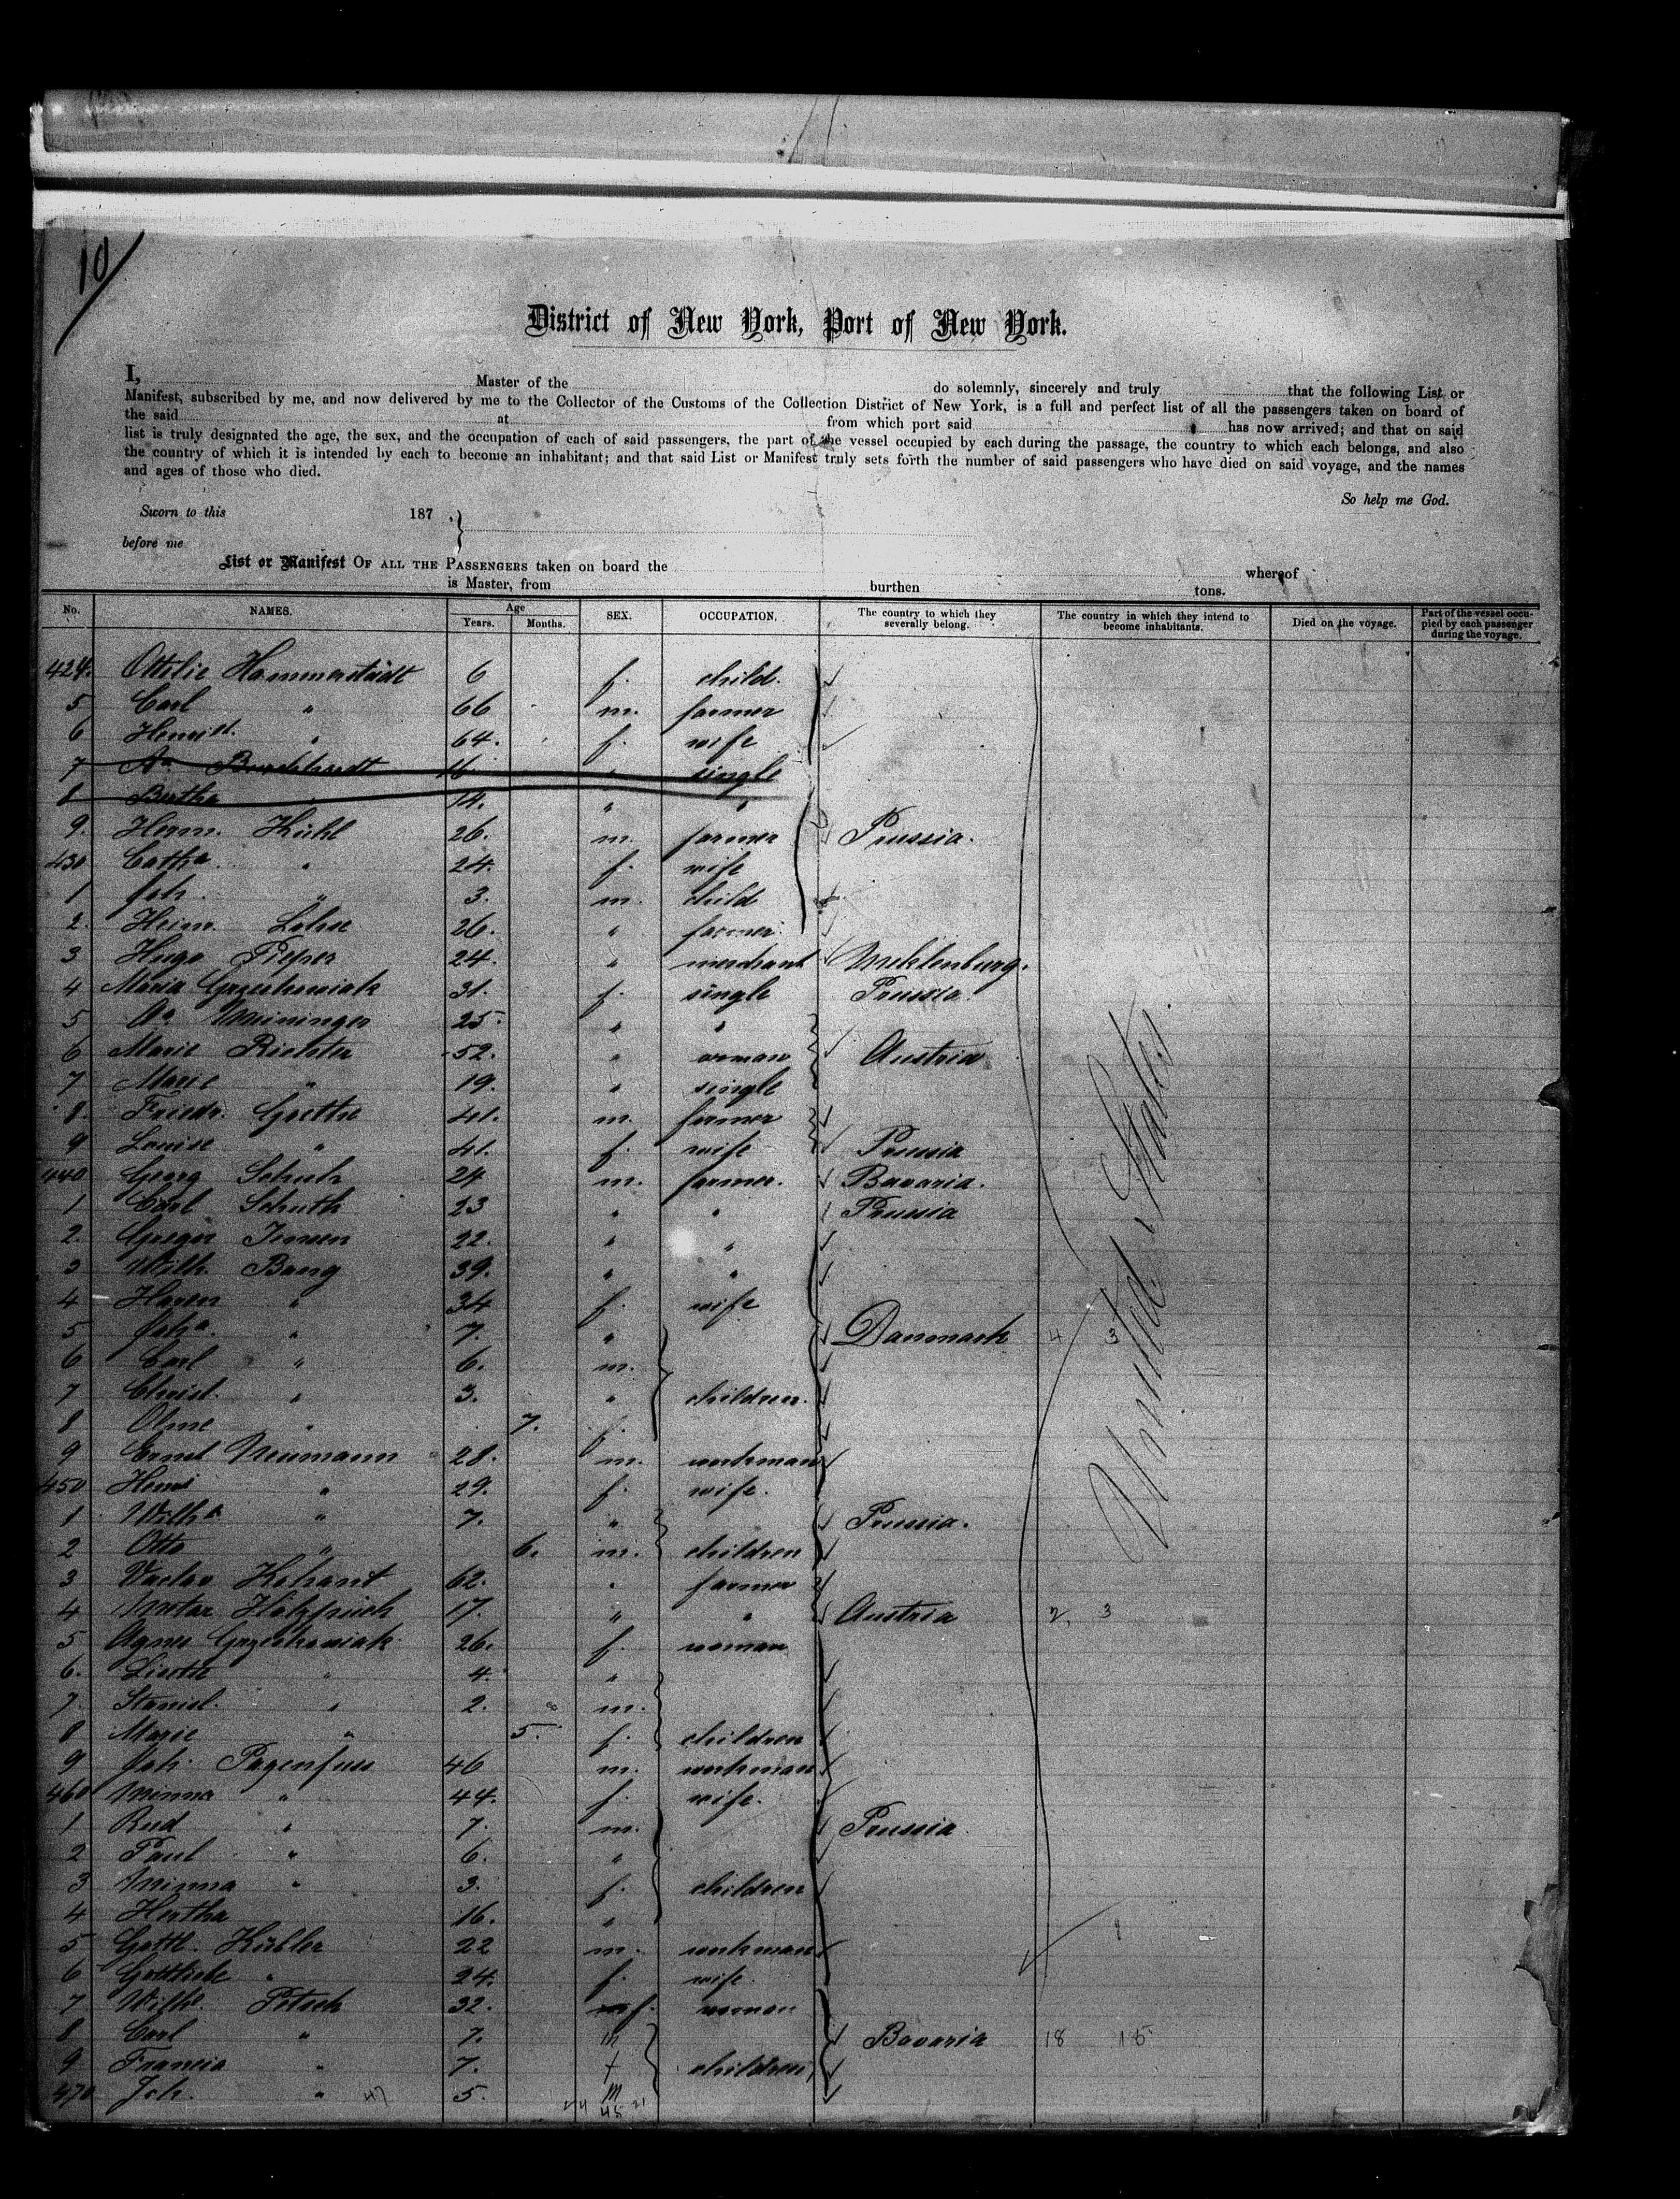 10
District of New York, Port of New York.
I, Master of the do solemnly, sincerely and truly that the following List or
Manifest, subscribed by me, and now delivered by me to the Collector of the Customs of the Collection District of New York, is a full and perfect list of all the passengers taken on board of
the said at from which port said has now arrived; and that on said
list is truly designated the age, the sex, and the occupation of each of said passengers, the part of the vessel occupied by each during the passage, the country to which each belongs, and also
the country of which it is intended by each to become an inhabitant; and that said List or Manifest truly sets forth the number of said passengers who have died on said voyage, and the names
and ages of those who died.
So help me God.
Sworn to this 187
before me
List or Manifest OF ALL THE PASSENGERS taken on board the whereof
is Master, from burthen tons.
No. NAMES. Age Years. Months. SEX. OCCUPATION. The country to which they severally belong. The country in which they intend to become inhabitants. Died on the voyage. Part of the vessel occupied by each passenger during the voyage.
424. Ottilie Hammerstädt 6 f. child.
5 Carl " 66 m. farmer
6 " 64. f. wife
7 Aa Burckhardt 16 " single
8 Bertha " 14. " "
9. Herm. Kühl 26. m. farmer Prussia.
430 Catha " 24. f. wife
1 Joh. " 3. m. child
2. Heinr. Lohse 26. " farmer
3 Hugo Pieper 24. " merchant Meklenburg.
4 Maria Grzeskowiak 31. f. single Prussia.
5 Aa Meininger 25. " "
6 Marie Richter 52. " woman Austria
7 Marie " 19. " single
8. Friedr. Goethe 41. m. farmer
9 Louise " 41. f. wife Prussia
440 Georg 24 m. farmer. Bavaria.
1 Carl Schuth 23 " " Prussia
2 Gregor Jensen 22. " "
3 Wilh. Bang 39. " "
4 Haren " 34 f. wife
5 Joha. " 7. " Danmark 4 3
6 Carl " 6. m.
7 Christ. " 3. " children.
8 Oline " 7. f.
9 Ernst Neumann 28. m. workman
450 Henri " 29. f. wife.
1 Wilha " 7. " Prussia.
2 Otto " 6. m. children
3 Vaclav 62. " farmer
4 17. " " Austria 2, 3
5 Agnes Grzeskowiak 26. f. woman
6. " 4. "
7 Stanisl. " 2. m.
8 Marie " 5. f. children
9 Joh. Pagenfuss 46 m. workman
460 Minna " 44. f. wife.
1 Rud " 7. m. Prussia.
2 Paul " 6. "
3 Minna " 3. f. children
4 Hertha 16. "
5 Gottl. Kübler 22 m. workman
6 Gottliebe " 24. f. wife.
7 Wilhe. Petsch 32. f. woman
8 Carl " 7. m Bavaria 18 15
9 Francia " 7. f children
470 Joh. " 5. m
47 24 45 21
United States.